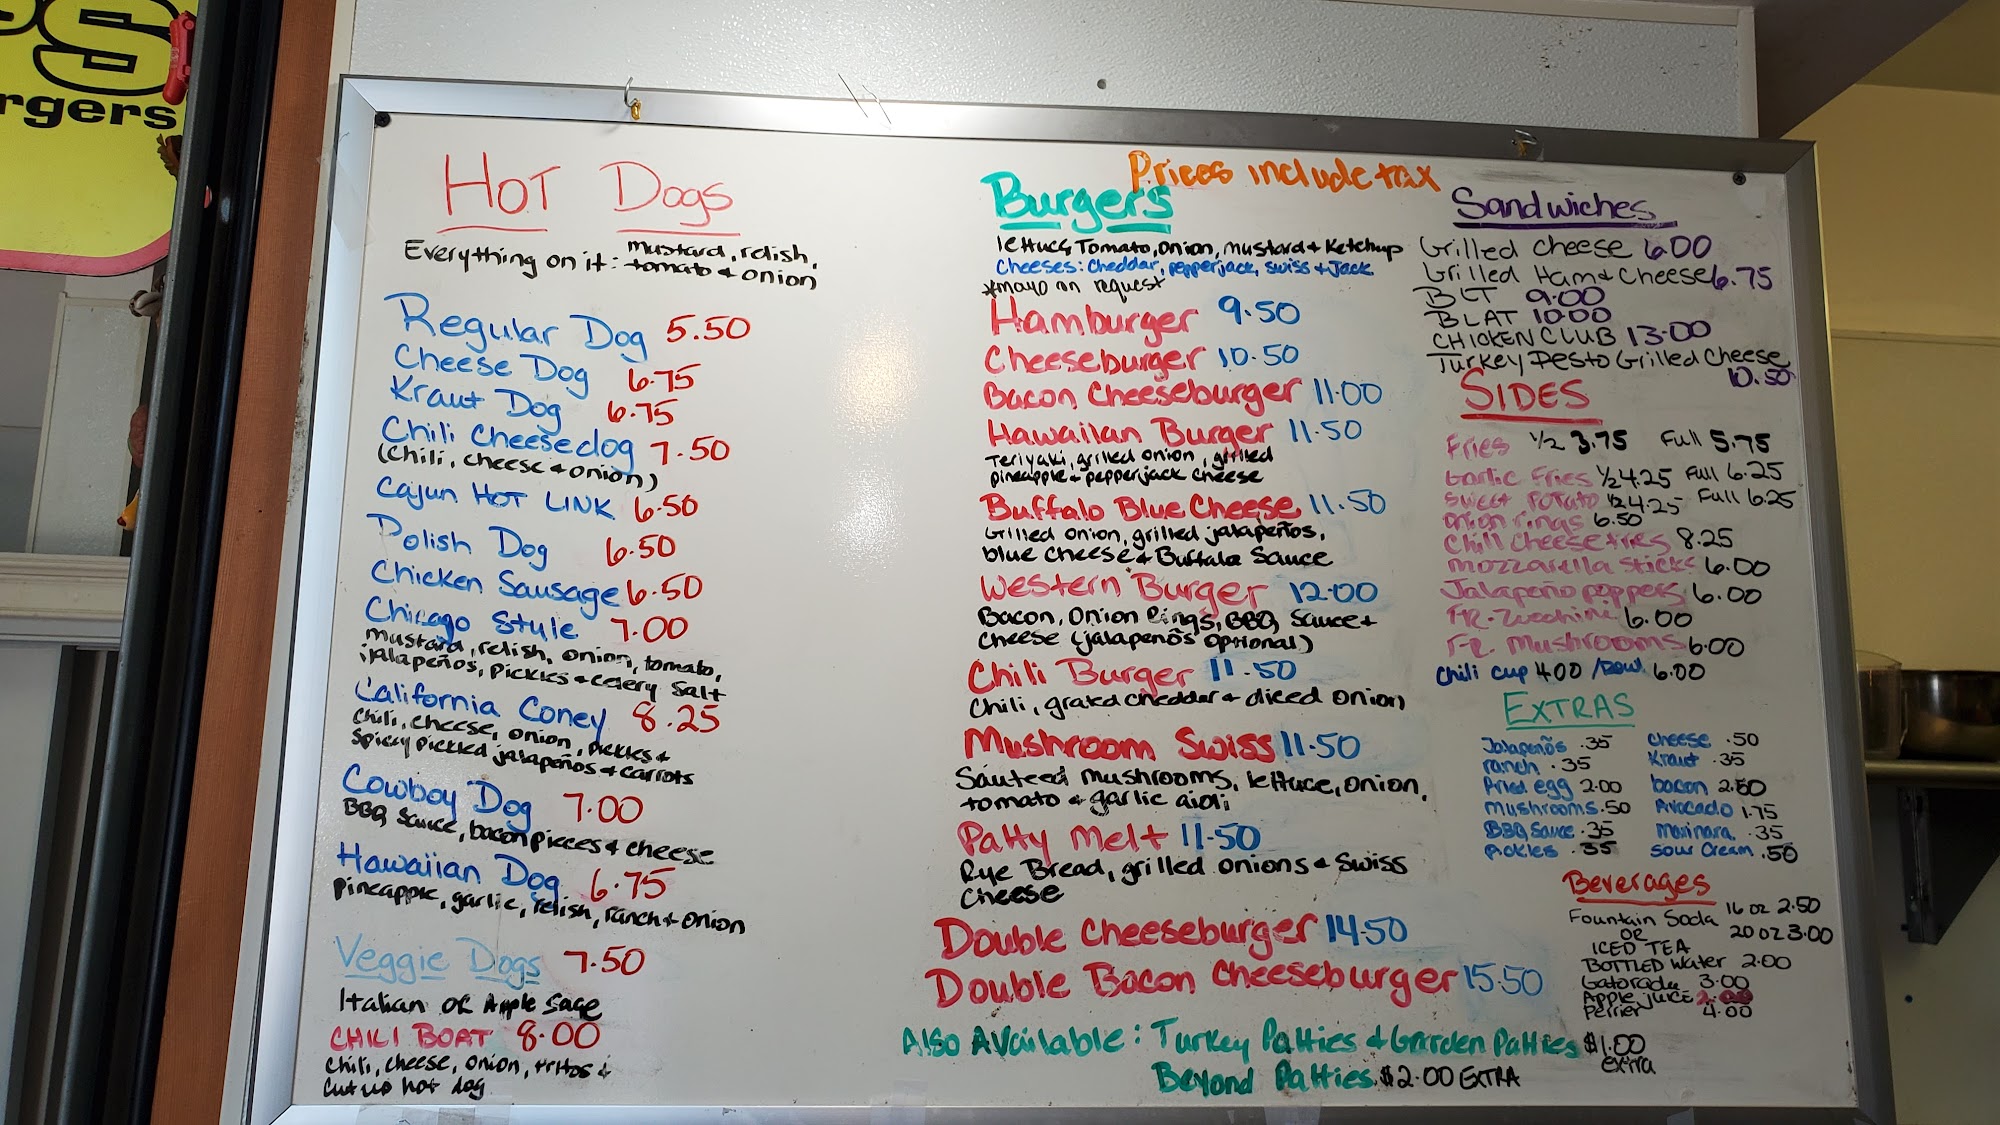 rgers
Prices include tax
Hot Dogs
Everything on it: mustard, relish,
tomato + onion
Regular Dog 5.50
Cheese Dog 6.75
Kraut Dog 6.75
Chili Cheesedog 7.50
(Chili, cheese + onion)
Cajun HOT LINK 6.50
Polish Dog 6.50
Chicken Sausage 6.50
Chicago Style 7.00
mustard, relish, onion, tomato,
jalapeños, pickles + celery salt
California Coney 8.25
Chili, cheese, onion, pickles +
spicy pickled jalapeños + carrots
Cowboy Dog 7.00
BBQ sauce, bacon pieces + cheese
Hawaiian Dog 6.75
pineapple, garlic, relish, ranch + onion
Veggie Dogs 7.50
Italian or Apple Sage
CHILI BOAT 8.00
Chili, cheese, onion, fritos +
cut up hot dog
Burgers
lettuce, Tomato, onion, mustard + Ketchup
Cheeses: Cheddar, pepperjack, swiss + Jack
*mayo on request
Hamburger 9.50
Cheeseburger 10.50
Bacon Cheeseburger 11.00
Hawaiian Burger 11.50
Teriyaki, grilled onion, grilled
pineapple + pepperjack cheese
Buffalo Blue Cheese 11.50
Grilled onion, grilled jalapeños,
blue cheese + Buffalo Sauce
Western Burger 12.00
Bacon, Onion Rings, BBQ Sauce +
Cheese (jalapenõs optional)
Chili Burger 11.50
Chili, grated cheddar + diced onion
Mushroom Swiss 11.50
Sauteed mushrooms, lettuce, onion,
tomato + garlic aioli
Patty Melt 11.50
Rye Bread, grilled onions + Swiss
Cheese
Double Cheeseburger 14.50
Double Bacon Cheeseburger 15.50
Also Available: Turkey Patties + Garden Patties $1.00
extra
Beyond Patties $2.00 EXTRA
Sandwiches
Grilled Cheese 6.00
Grilled Ham + Cheese 6.75
BLT 9.00
BLAT 10.00
CHICKEN CLUB 13.00
Turkey Pesto Grilled Cheese
10.50
SIDES
Fries 1/2 3.75 Full 5.75
Garlic Fries 1/2 4.25 Full 6.25
Sweet Potato 1/2 4.25 Full 6.25
onion rings 6.50
Chili Cheese fries 8.25
mozzarella sticks 6.00
Jalapeño poppers 6.00
FR. Zucchini 6.00
FR. mushrooms 6.00
Chili cup 4.00 /Bowl 6.00
EXTRAS
Jalapenõs .35 cheese .50
ranch .35 Kraut .35
Fried egg 2.00 bacon 2.50
mushrooms .50 Avocado 1.75
BBQ Sauce .35 marinara .35
Pickles .35 sour Cream .50
Beverages
Fountain Soda 16 oz 2.50
OR 20 oz 3.00
ICED TEA
BOTTLED Water 2.00
Gatorade 3.00
Apple juice
Perrier 4.00